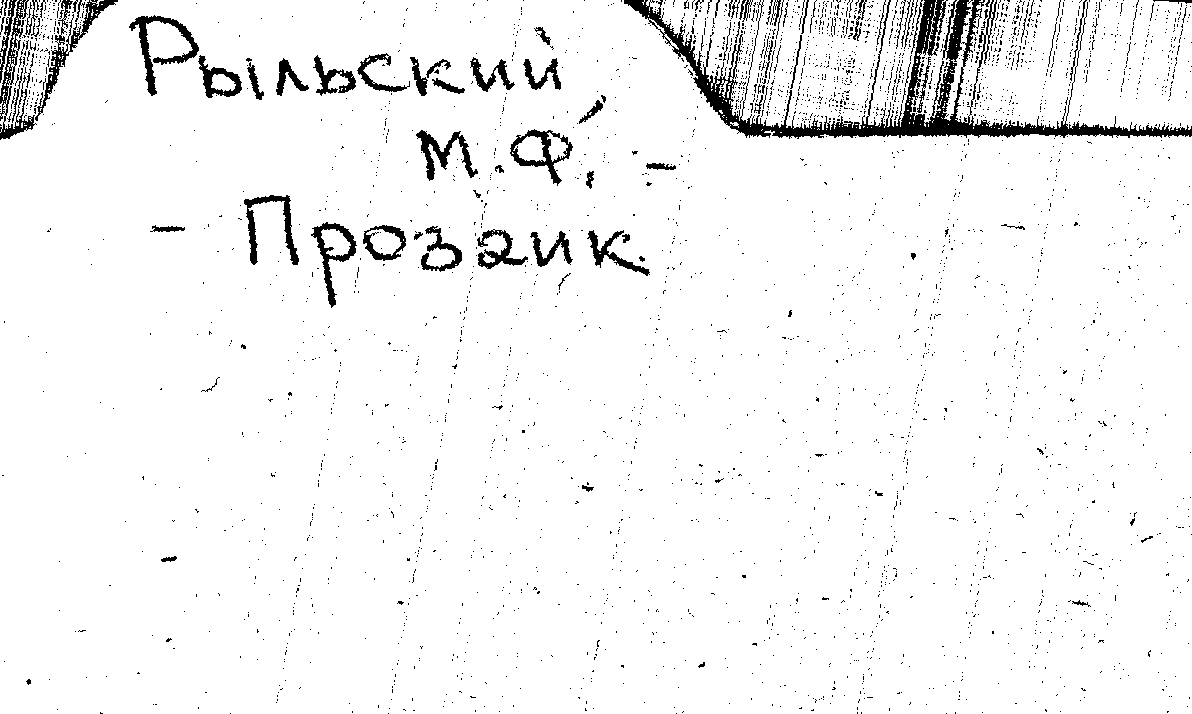 Рыльский
М.Ф. -
- Прозаик.